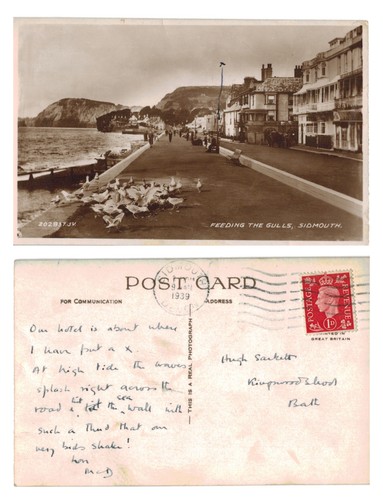 FEEDING THE GULLS, SIDMOUTH.
POST CARD
FOR COMMUNICATION
ADDRESS
SIDMOUTH
1939
POSTAGE
REVENUE
1D
GREAT BRITAIN
THIS IS A REAL PHOTOGRAPH
Our hotel is about where
I have put a x.
At high tide the waves
splash right across the
road & hit the sea wall with
such a thud that our
very beds shake!
Hugh
Kingswood School
Bath